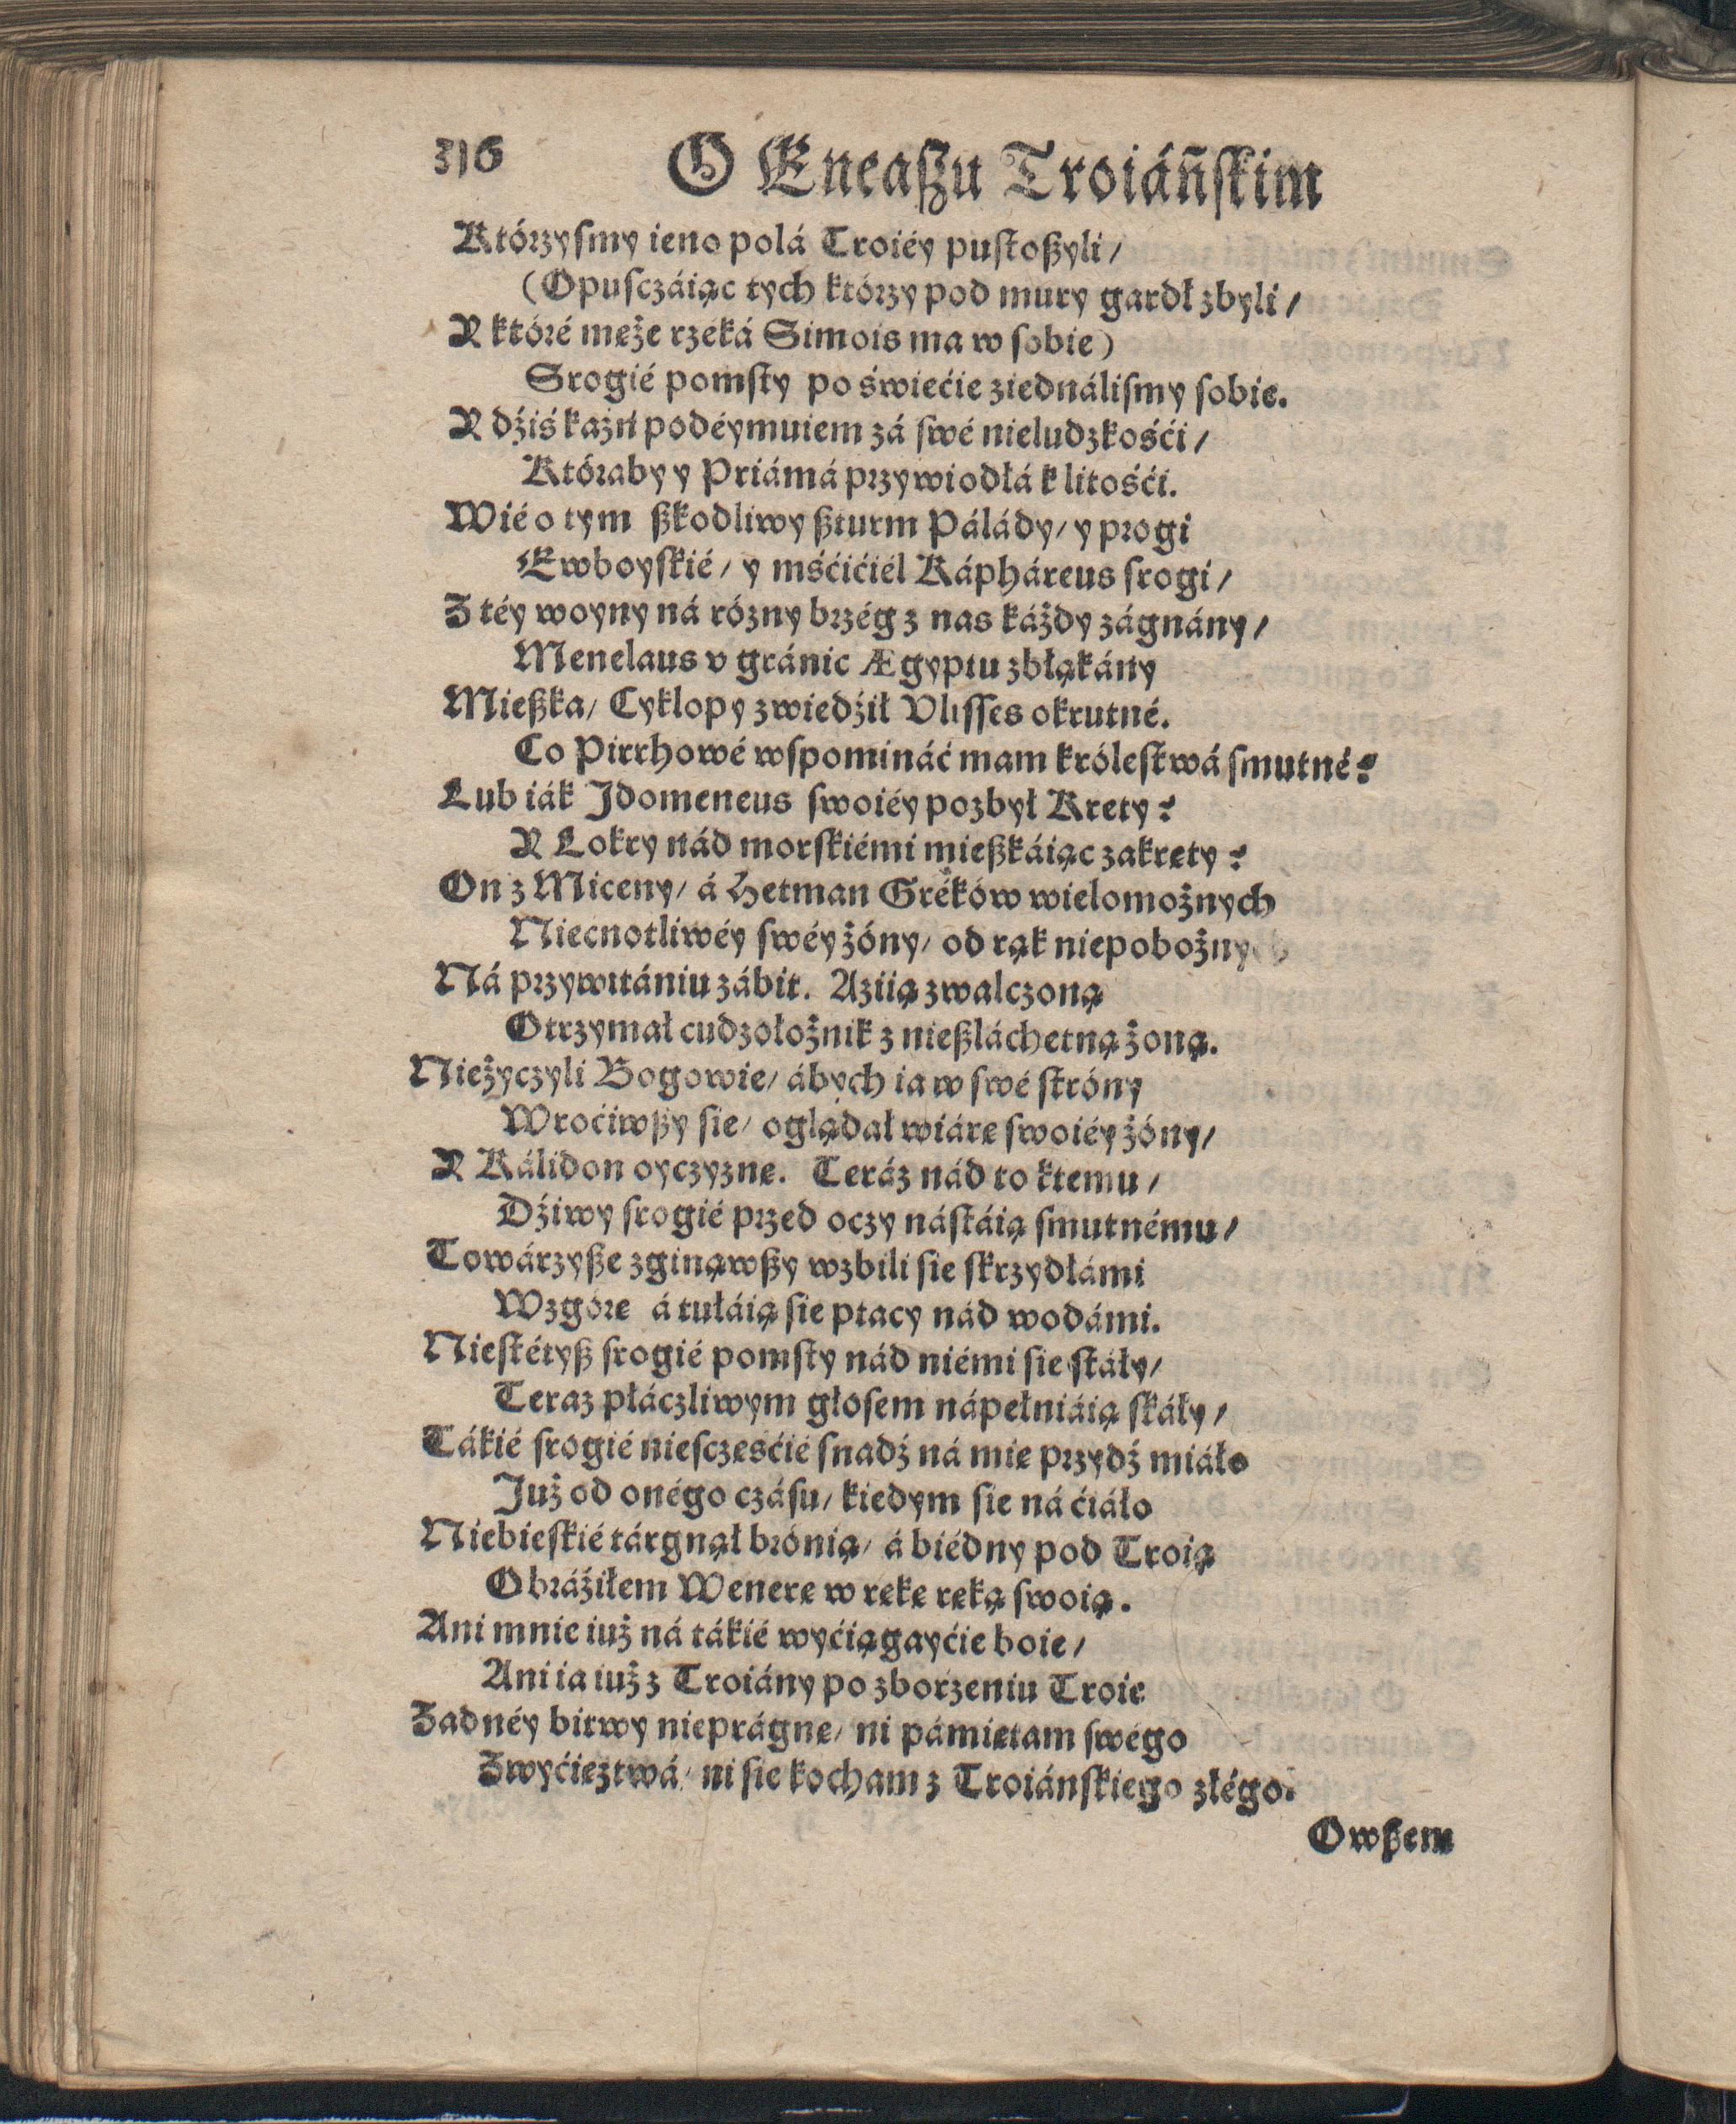 316 O Eneaſzu Troiáńſkim
Którzyſmy ieno polá Troiéy puſtoßyli/
(Opuſczáiąc tych którzy pod mury gardł zbyli/
Y któré męże rzéká Simois ma w ſobie)
Srogié pomſty po świećie ziednáliſmy ſobie.
Y dźiś kaźń podéymuiem zá ſwé nieludzkośći/
Któraby y Priámá przywiodłá k litośći.
Wié o tym ßkodliwy ßturm Pálády/ y progi
Ewboyſkié/ y mśćićiél Kápháreus ſrogi/
Z téy woyny ná rózny brzég z nas káżdy zágnány/
Menelaus v gránic Ægyptu zbłąkány
Mießka/ Cyklopy zwiedźił Vliſſes okrutné.
Co Pirrhowé wſpomináć mam króleſtwá ſmutné?
Lub iák Idomeneus ſwoiéy pozbył Krety?
Y Lokry nád morſkiémi mießkáiąc zakręty?
On z Miceny/ á Hetman Gréków wielomożnych
Niecnotliwéy ſwéy żóny/ od rąk niepobożnych
Ná przywitániu zábit. Aziią zwalczoną
Otrzymał cudzołożnik z nießláchetną żoną.
Nieżyczyli Bogowie/ ábych ia w ſwé ſtróny
Wroćiwßy ſie/ oglądał wiárę ſwoiéy żóny/
Y Kálidon oyczyznę. Teráz nád to ktemu/
Dźiwy ſrogié przed oczy náſtáią ſmutnému/
Towárzyße zginąwßy wzbili ſie ſkrzydłámi
Wzgórę á tułáią ſie ptacy nád wodámi.
Nieſtétyß ſrogié pomſty nád niémi ſie ſtáły/
Teraz płáczliwym głoſem nápełniáią ſkáły/
Tákié ſrogié nieſczęsćié ſnadź ná mię przydź miáło
Już od onégo czáſu/ kiedym ſie ná ćiáło
Niebieſkié tárgnął brónią/ á biédny pod Troią
Obráźiłem Wenerę w rękę ręką ſwoią.
Ani mnie iuż ná tákié wyćiągayćie boie/
Ani ia iuż z Troiány po zborzeniu Troie
Zadnéy bitwy nieprágnę/ ni pámiętam ſwégo
Zwyćięztwá/ ni ſie kocham z Troiánſkiego złégo.
Owßem